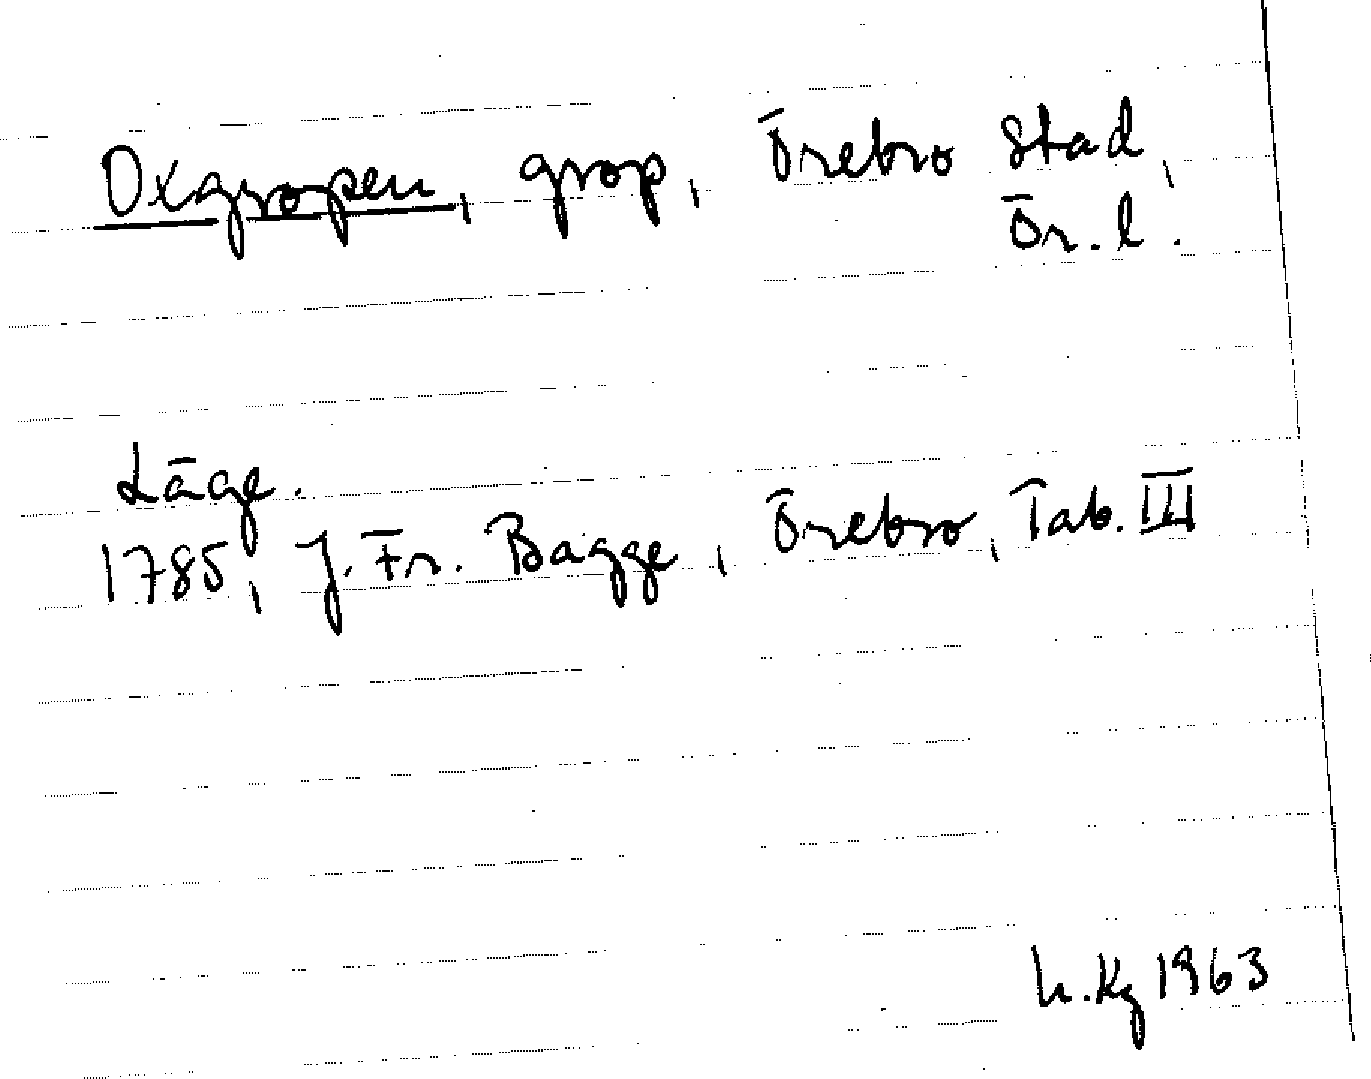 Oxgropen, grop, Örebro Stad,
Ör. l.
Läge.
1785, J. Fr. Bagge, Örebro, Tab. III
h. Kg 1963